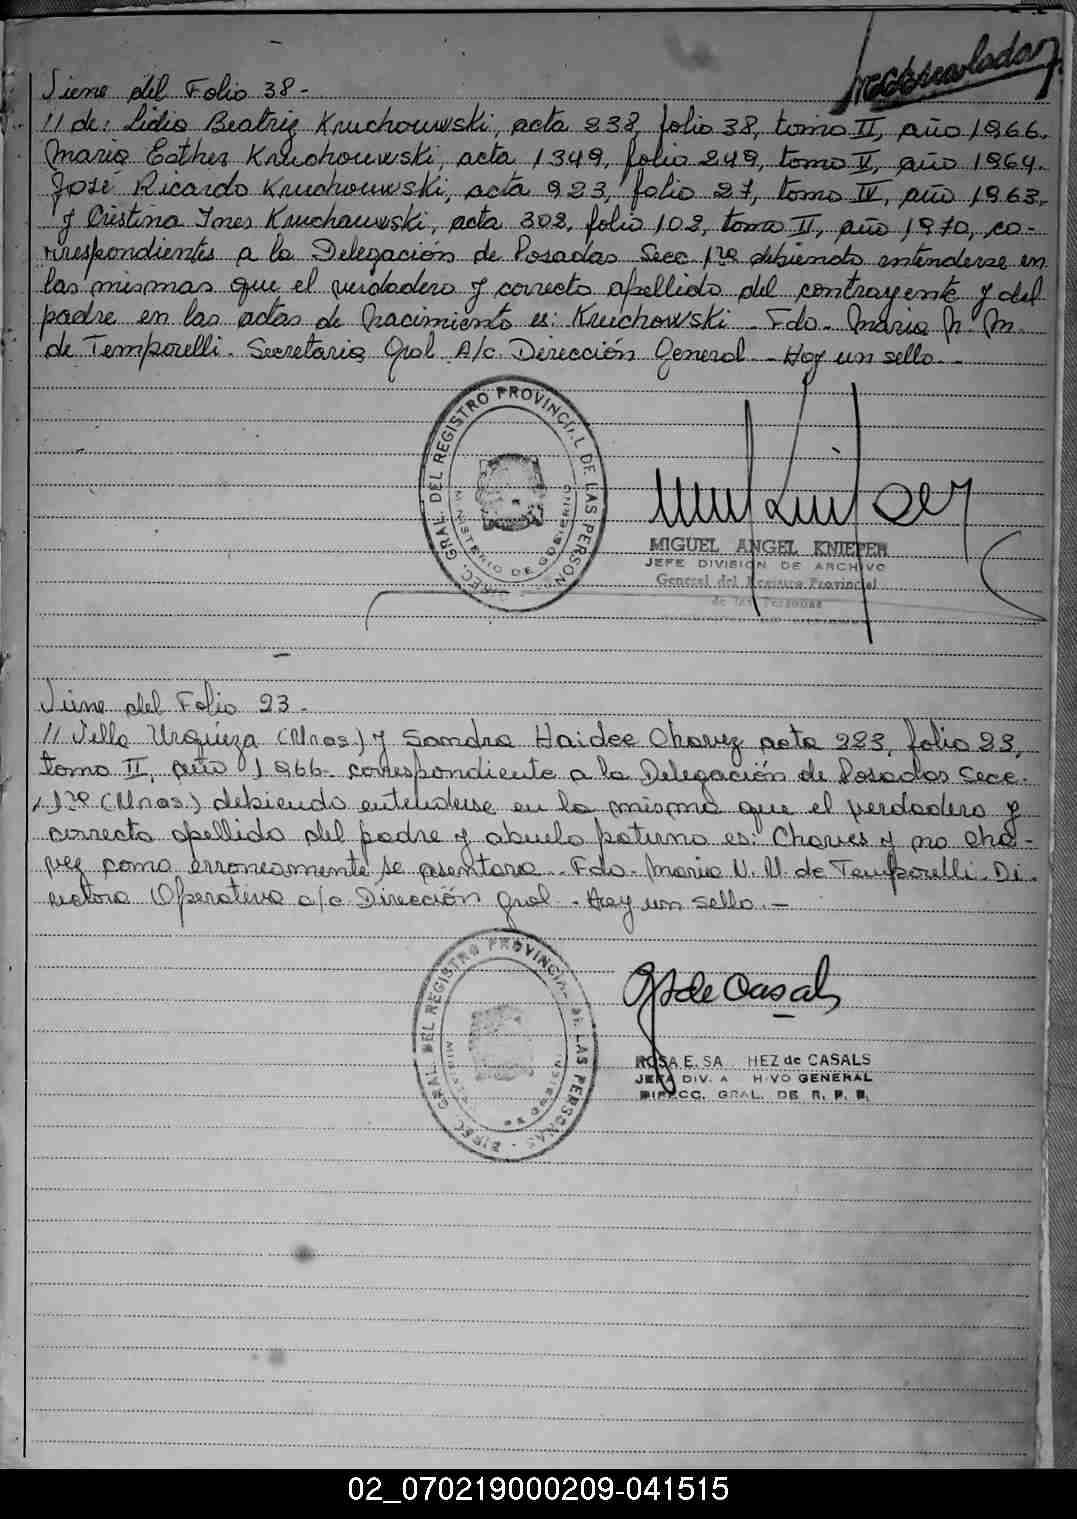 Viene del Folio 38.-
// de: Lidia Beatriz Kruchouwski, acta 238, folio 38, tomo II, año 1966.
Maria Esther Kruchouwski, acta 1349, folio 249, tomo V, año 1964.
José Ricardo Kruchouwski, acta 923, folio 27, tomo IV, año 1963.
y Cristina Ines Kruchouwski, acta 302, folio 102, tomo II, año 1970, co-
rrespondientes a la Delegación de Posadas Secc. 1ra debiendo entenderse en
las mismas que el verdadero y correcto apellido del contrayente y del
padre en las actas de nacimiento es: Kruchowski. Fdo. Maria N. M.
de Temporelli. Secretaria Gral A/c. Dirección General - Hay un sello.-
DIREC. GRAL. DEL REGISTRO PROVINCIAL DE LAS PERSONAS
MINISTERIO DE GOBIERNO
MIGUEL ANGEL KNIEPER
JEFE DIVISION DE ARCHIVO
General del Registro Provincial
de las Personas
Viene del Folio 23.-
// Villa Urquiza (Mnes.) y Sandra Haidee Chavez acta 223, folio 23,
tomo II, año 1966. correspondiente a la Delegación de Posadas Secc.
1ra (Mnes.) debiendo entenderse en la misma que el verdadero y
correcto apellido del padre y abuelo paterno es: Chaves y no Cha-
vez como erroneamente se asentara. Fdo. Maria N. M. de Temporelli. Di-
rectora Operativa a/c Dirección Gral. Hay un sello.-
DIREC. GRAL. DEL REGISTRO PROVINCIAL DE LAS PERSONAS
de Casals
ROSA E. SA HEZ de CASALS
JEFA DIV. A HIVO GENERAL
DIRECC. GRAL. DE R. P. P.
02_070219000209-041515